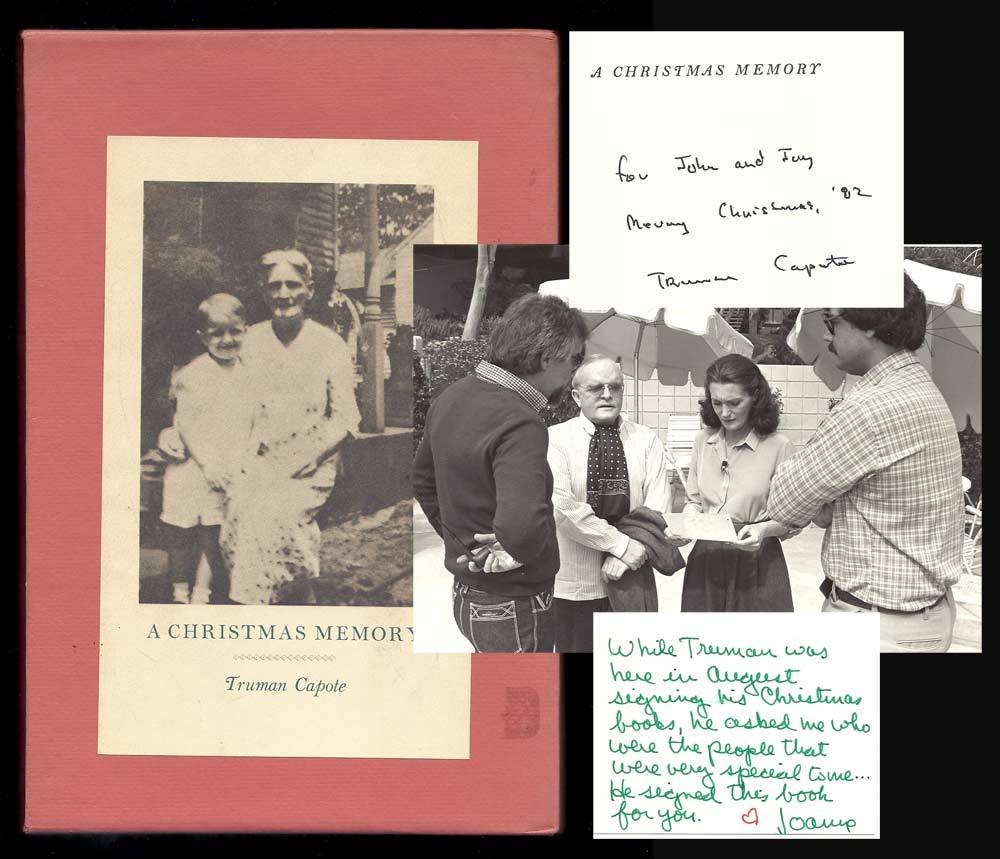 A CHRISTMAS MEMORY
Truman Capote
A CHRISTMAS MEMORY
for John and Joy
Merry Christmas, '82
Truman Capote
While Truman was
here in August
signing his Christmas
books, he asked me who
were the people that
were very special to me...
He signed this book
for you. ♡ Joanne